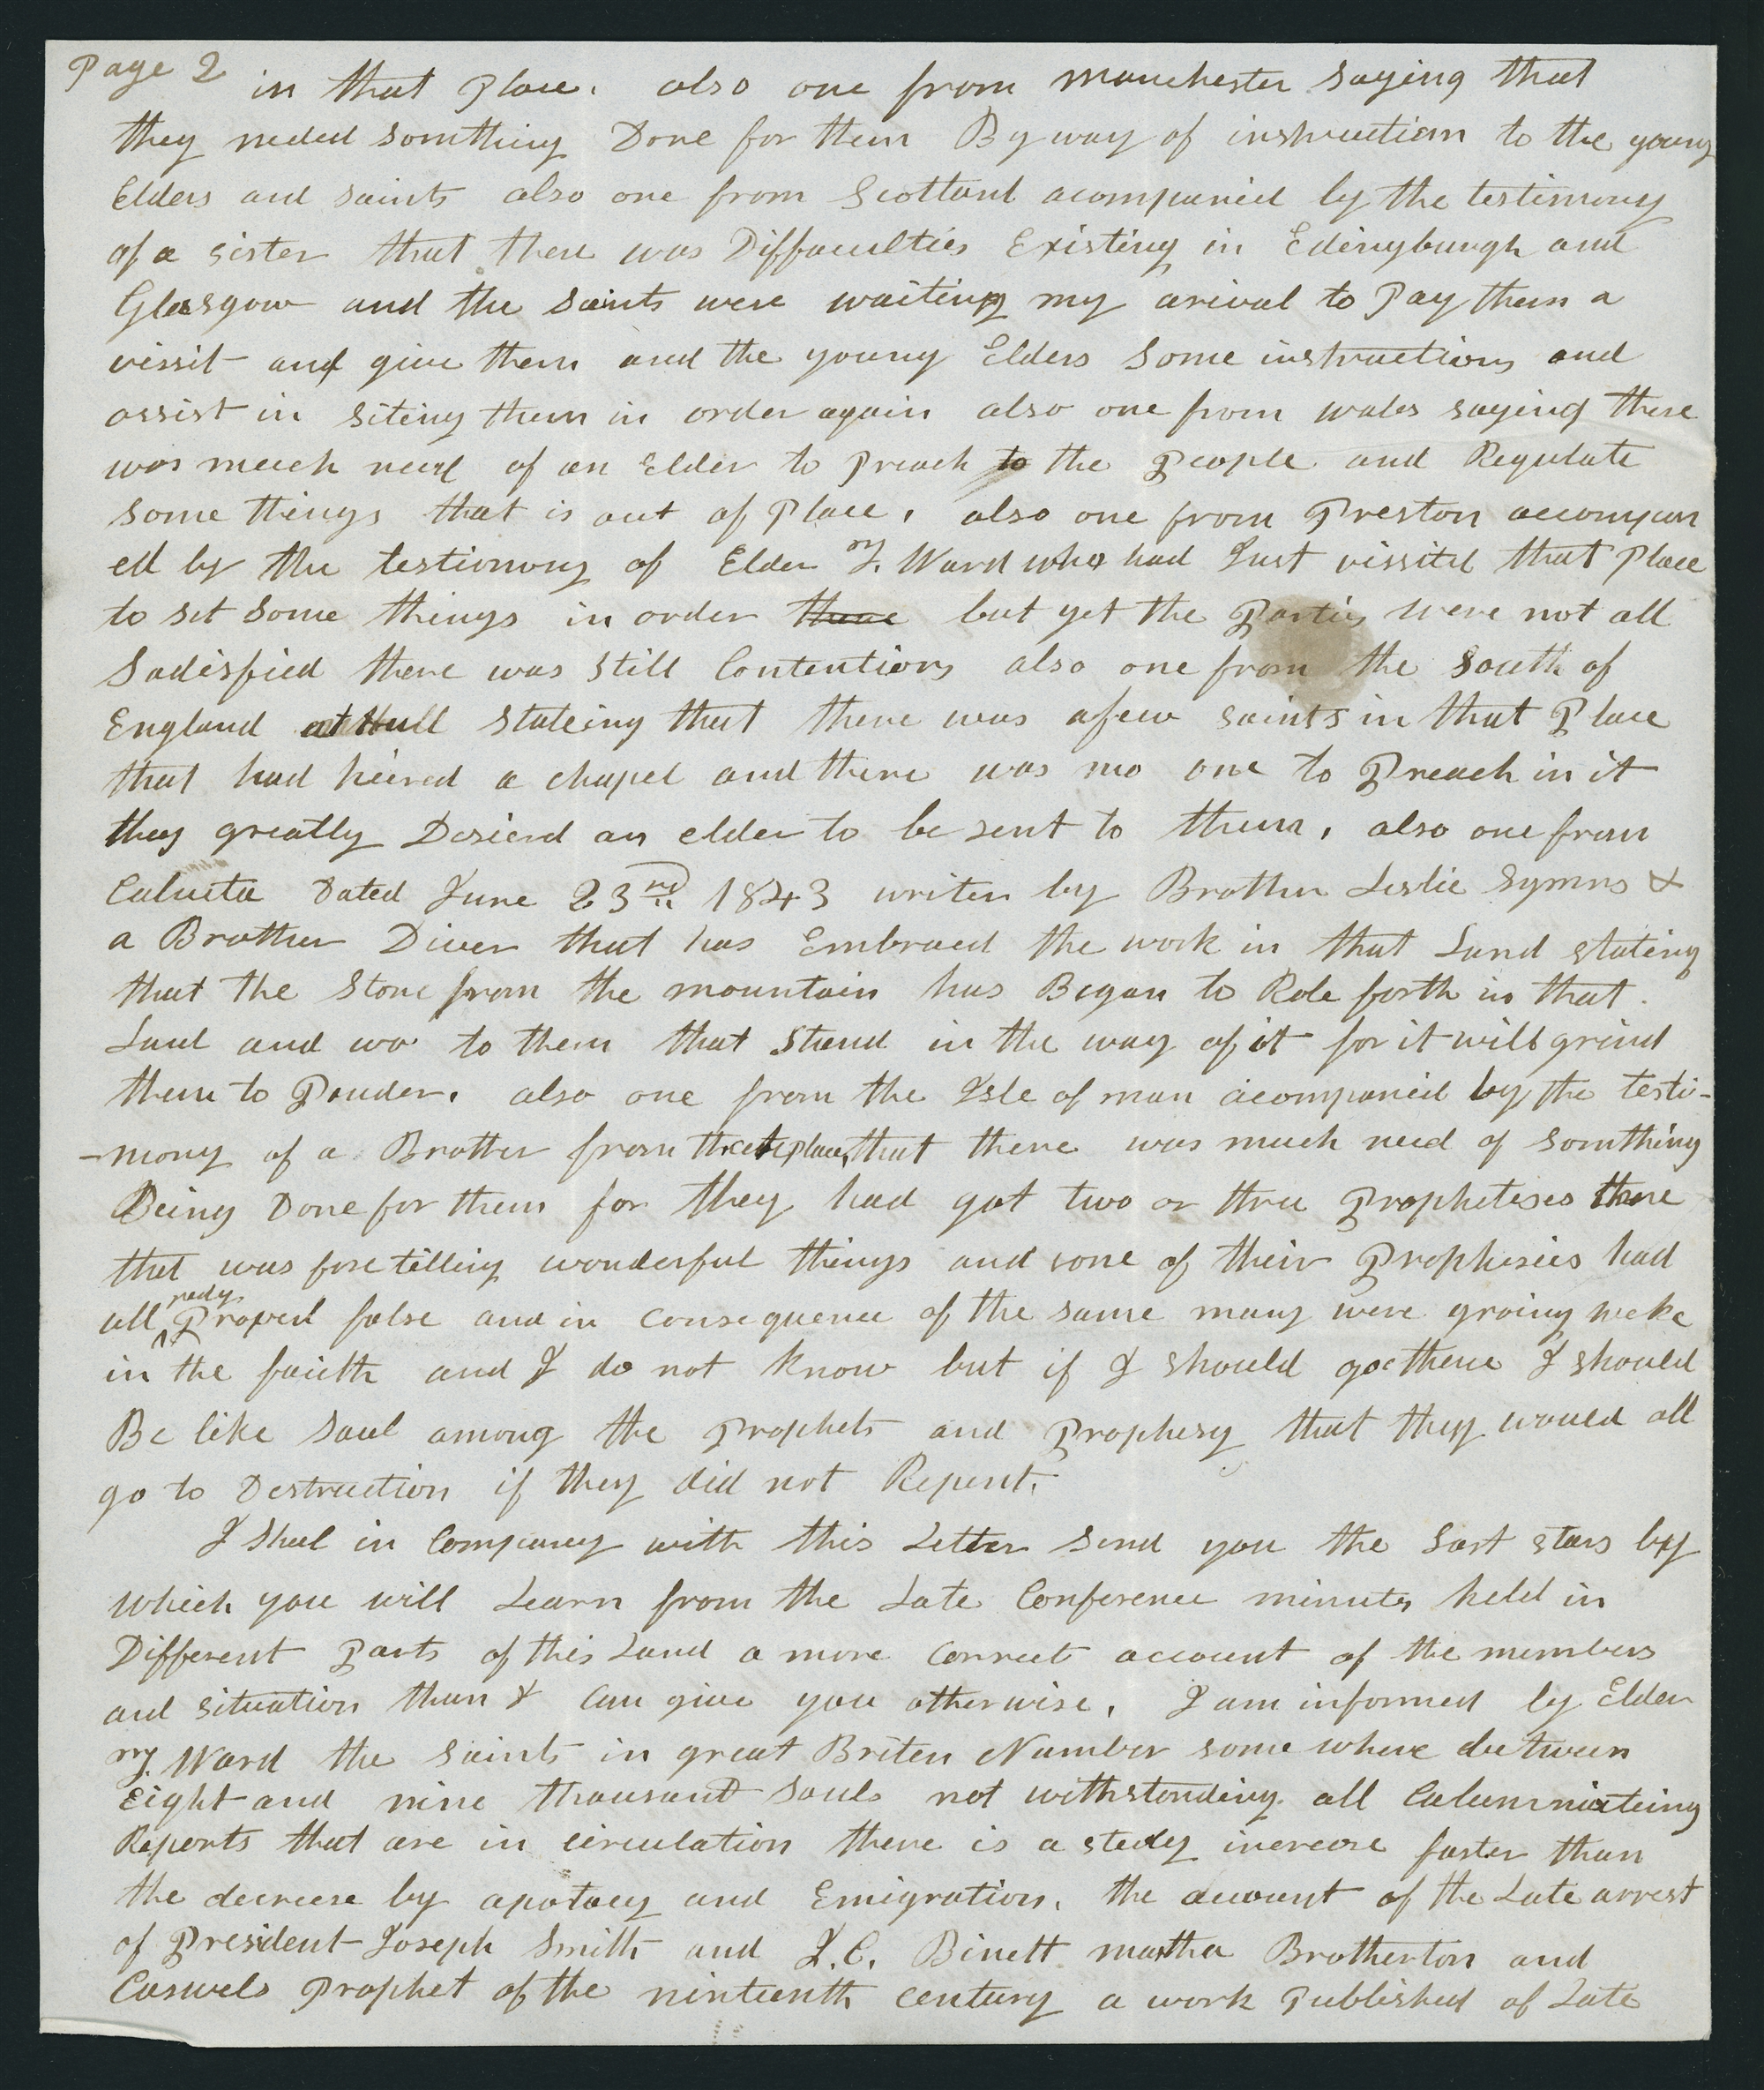 Page 2 in that Place. also one from manchester saying that
they neded somthing Done for them By way of instruction to the young
Elders and saints also one from Scotland acompanied by the testimony
of a sister that there was Diffaculties Existing in Edingburgh and
Glasgow and the saints were waiting my arival to Pay them a
vissit and give them and the young Elders some instructions and
assist in siting them in order again also one from wales saying there
was much need of an Elder to Preach to the People and Regulate
some things that is out of Place, also one from Preston accompan
ed by the testimony of Elder T. Ward who had Just vissited that Place
to set some things in order there but yet the Parties were not all
Sadisfied there was still Contentions also one from the South of
England at Hull stateing that there was afew saints in that Place
that had heired a chapel and there was no one to Preach in it
they greatly Desierd an elder to be sent to them, also one from
Calcuta Dated June 23rd 1843 writen by Brother Leslie Symns &
a Brother Diver that has Embraced the work in that Land stating
that the Stone from the mountain has Began to Role forth in that
Land and wo to them that Stand in the way of it for it will grind
them to Pouder. also one from the Isle of man acompanied by the testi-
-mony of a Brother from that place, that there was much need of somthing
Being Done for them for they had got two or three Prophetises there
that was foretelling wonderful things and some of their Prophisies had
all redy Proved false and in consequence of the same many were groing weke
in the faith and I do not know but if I should goe there I should
Be like Saul among the Prophets and Prophesy that they would all
go to Destruction if they did not Repent.
I Shal in Company with this Letter send you the Last stars by
which you will Learn from the Late Conference minutes held in
Different Parts of this Land a more correct account of the members
and situation than I can give you otherwise. I am informed by Elder
T. Ward the saints in great Briten Number some where between
Eight and nine thousand souls not withstanding all Calumniateing
Reports that are in circulation there is a stedy increase faster than
the decrese by apotacy and Emigration. the account of the Late arrest
of President Joseph Smith and J. C. Binett martha Brotherton and
Caswels Prophet of the ninteenth century a work Published of Late